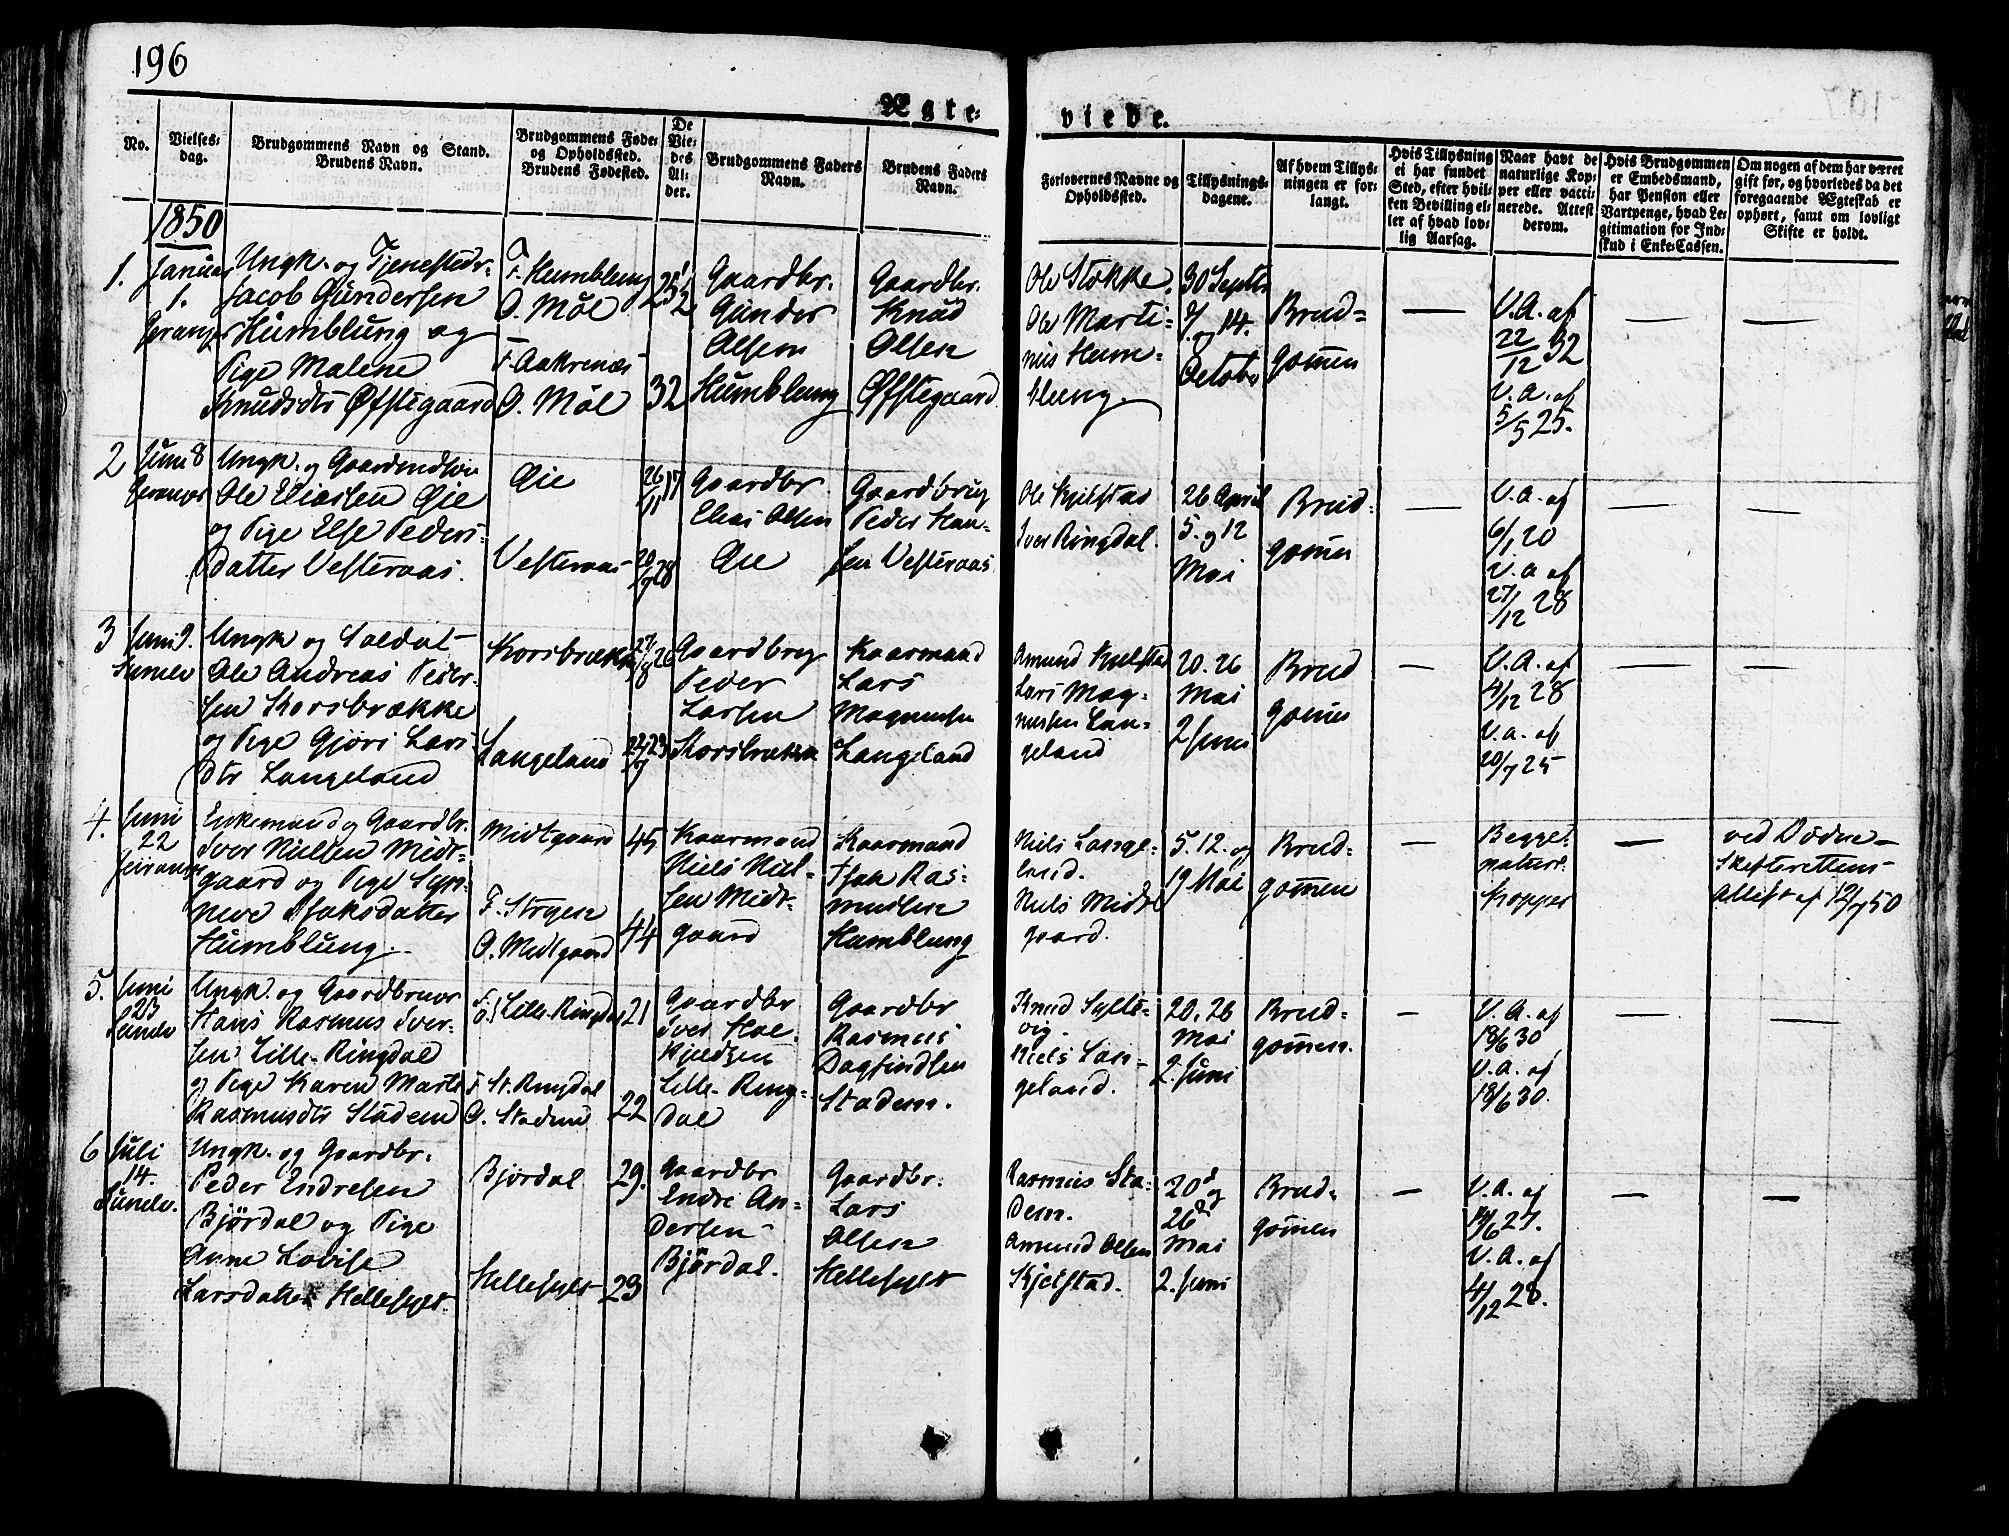 196
Ægte-
viede.
No.
Vielses-
dag.
Brudgommens Navn og Stand.
Brudens Navn.
Brudgommens Føde-
og Opholdssted.
Brudens Fødested.
De
Vie-
des
Al-
der.
Brudgommens Faders
Navn.
Brudens Faders
Navn.
Forlovernes Navne og
Opholdssted.
Tillysnings-
dagene.
Af hvem Tillys-
ningen er for-
langt.
Hvis Tillysning
ei har fundet
Sted, efter hvil-
ken Bevilling el-
ler af hvad lov-
lig Aarsag.
Naar havt de
naturlige Kop-
per eller vacci-
nerede. Attest
derom.
Hvis Brudgommen
er Embedsmand,
har Pension eller
Vartpenge, hvad Le-
gitimation for Ind-
skud i Enke-Cassen.
Om nogen af dem har været
gift før, og hvorledes da det
foregaaende Ægteskab er
ophørt, samt om lovligt
Skifte er holdt.
1850
1.
Januar
1.
Ungk. og
Jacob Gundersen
Humblung og
Pige Malene
Knudsdtr Øfstegaard
F. Humblung
O. Möl
F. Aakrenæs
O. Möl
25 1/2
32
Gaardbr.
Gunder
Olsen
Humblung
Gaardbr.
Knud
Olsen
Øfstegaard
Ole Stokke.
Ole Marti-
nus Hum-
blung.
30 Septbr
7. og 14.
October
Brud-
gomen
—
V. A. af
22/12 32
V. A. af
5/5 25.
—
—
2
Juni 8
Ungk. og
Ole Eliassen Øie
og Pige Else Peders-
datter Vesteraas.
Øie
Vesteraas
26/11 17
20/7 28
Gaardbr
Elias Olsen
Øie
Gaardbrug
Peder Han-
sen Vesteraas
Ole Kjelstad
Iver Ringdal.
26 April
5. og 12
Mai
Brud-
gomen
—
V. A. af
6/1 20
V. a. af
27/12 28
—
—
3
Juni 9.
Sunelv
Ungk og Soldat
Ole Andreas Peder-
sen Korsbrække
og Pige Gjöri Lars
dtr Langeland
Korsbrække
Langeland
27/8 26
23
Gaardbrug
Peder
Larsen
Korsbrække
Kaarmand
Lars
Magnusen
Langeland
Amund Kjelstad
Lars Mag-
nussen Lan-
geland
20. 26
Mai
2 Juni
Brud
gomen
—
V. A. af
4/12 28
V. a. af
20/7 25
—
—
4.
Juni
22
Enkemand og Gaardbr.
Iver Nielsen Midt-
gaard og Pige Syn-
neve Isaksdatter
Humblung.
Midtgaard
F. Stryen
O. Midtgaard
45
44
Kaarmand
Niels Niel-
sen Midt-
gaard
Kaarmand
Isak Ras-
mussen
Humblung
Niels Lange-
land.
Niels Midt-
gaard.
5. 12. og
19 Mai
Brud-
gomen
—
Begge
naturl.
Kopper
—
ved Döden
Skifterettens
Attest af 12/7 50
5.
Juni
23
Sunelv
Ungk. og Gaardbruger
Hans Rasmus Iver-
sen Lille-Ringdal
og Pige Karen Marte
Rasmusdtr Stadem
F. O. Lille-Ringdal
F. St. Ringdal
O. Stadem
21
22
Gaardbr
Iver Hal-
kjeldsen
Lille-Ring-
dal
Gaardbr
Rasmus
Dagfindsen
Stadem.
Knud Sylte-
vig.
Niels Lan-
geland.
20. 26
Mai
2. Juni
Brud-
gomen.
—
V. A. af
18/6 30
V. a. af
18/6 30.
—
—
6
Juli
14.
Sunelv.
Ungk. og Gaardbr.
Peder Endresen
Björdal og Pige
Anne Lovise
Larsdatter Hellesylt.
Björdal
Hellesylt
29.
23
Gaardbr
Endre An-
dersen
Björdal.
Gaardbr.
Lars
Olsen
Hellesylt
Rasmus Sta-
dem.
Amund Olsen
Kjelstad.
20d og
26d
Mai
2. Juni
Brud-
gomen
—
V. A. af
14/6 27.
V. A. af
4/12 28.
—
—